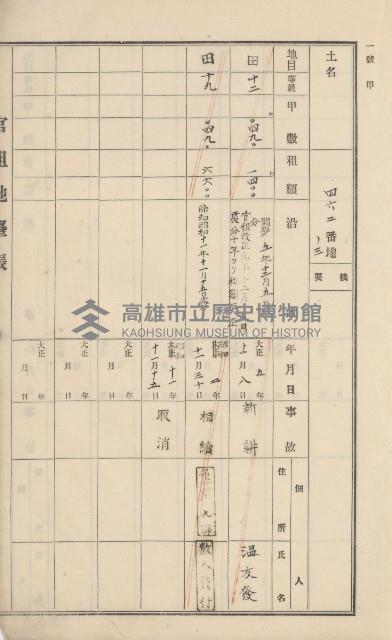 一號甲
土名
四六二番地
ノ三
摘要
地目
等級
甲數
租額
沿
年月日
事故
佃人
住所
氏名
田
十二
〇四九〇
一四〇〇
大正五年
十二月八日
新耕
温友發
田
十九
〇四九〇
六六〇〇
除却昭和十一年十一月十五日
昭和
大正二年
十一月三十日
相續
數人代付
昭和
大正十一年
十一月十五日
取消
大正年
月日
大正年
月日
大正年
月日
官租地臺帳
高雄市立歷史博物館
KAOHSIUNG MUSEUM OF HISTORY